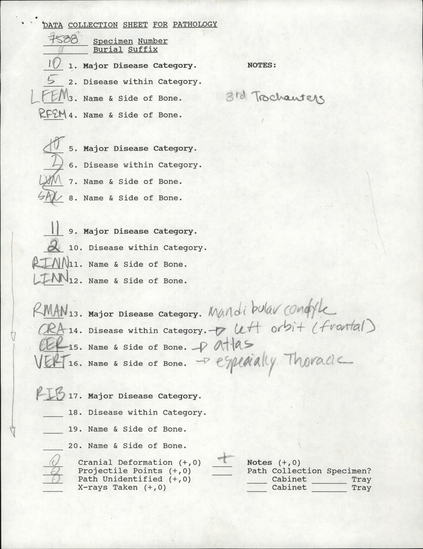 DATA COLLECTION SHEET FOR PATHOLOGY
7588 Specimen Number
0 Burial Suffix
10 1. Major Disease Category. NOTES:
5 2. Disease within Category.
LFEM 3. Name & Side of Bone. 3rd Trochanters
RFEM 4. Name & Side of Bone.
10 5. Major Disease Category.
2 6. Disease within Category.
LUM 7. Name & Side of Bone.
SAC 8. Name & Side of Bone.
11 9. Major Disease Category.
2 10. Disease within Category.
RINN 11. Name & Side of Bone.
LINN 12. Name & Side of Bone.
RMAN 13. Major Disease Category. Mandibular condyle
CRA 14. Disease within Category. → left orbit (frontal)
CER 15. Name & Side of Bone. → atlas
VERT 16. Name & Side of Bone. → especially Thoracic
RIB 17. Major Disease Category.
18. Disease within Category.
19. Name & Side of Bone.
20. Name & Side of Bone.
0 Cranial Deformation (+,0) + Notes (+,0)
0 Projectile Points (+,0) Path Collection Specimen?
0 Path Unidentified (+,0) Cabinet Tray
X-rays Taken (+,0) Cabinet Tray